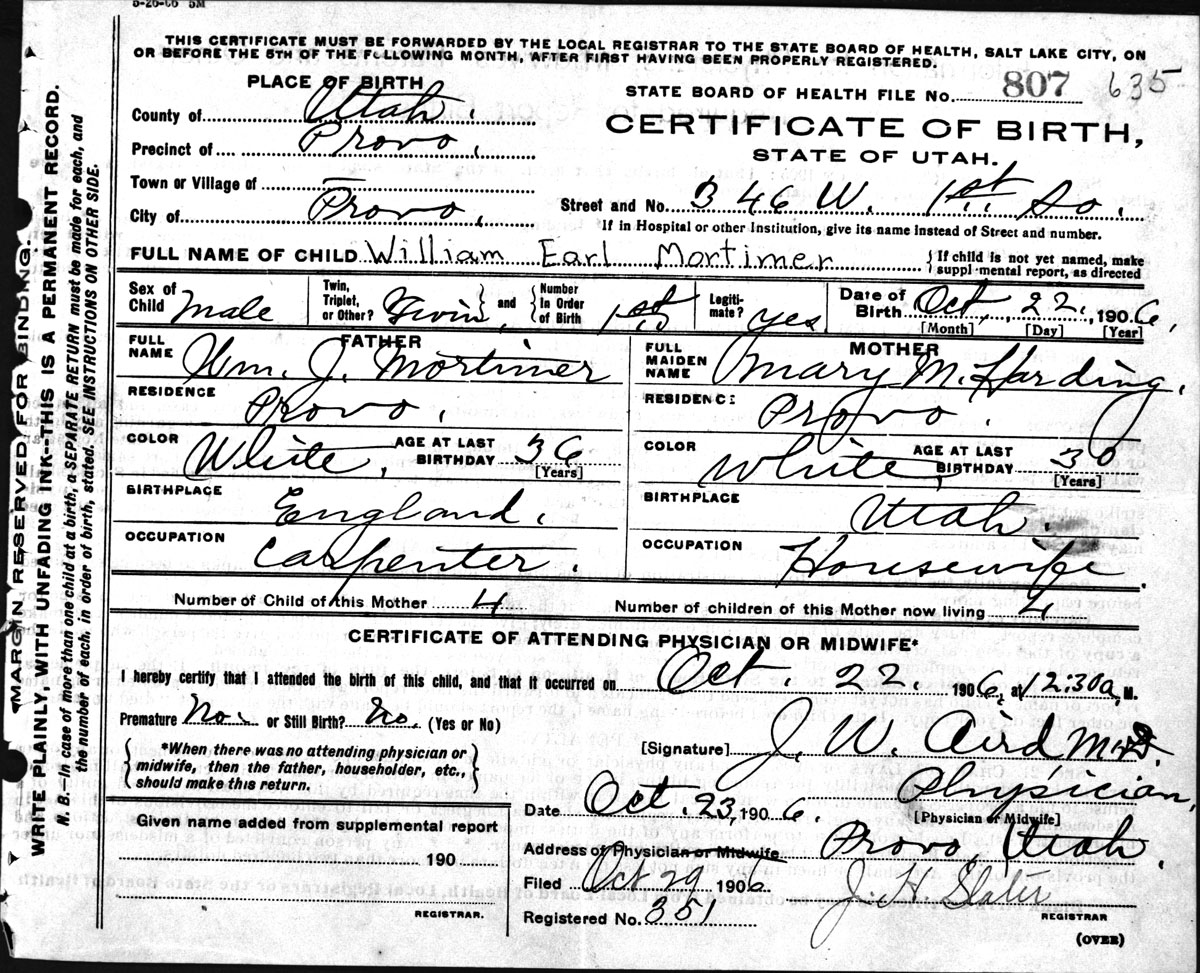 5-26-06 5M
THIS CERTIFICATE MUST BE FORWARDED BY THE LOCAL REGISTRAR TO THE STATE BOARD OF HEALTH, SALT LAKE CITY, ON
OR BEFORE THE 5TH OF THE FOLLOWING MONTH, AFTER FIRST HAVING BEEN PROPERLY REGISTERED.
PLACE OF BIRTH
STATE BOARD OF HEALTH FILE No. 807 635
County of Utah.
CERTIFICATE OF BIRTH,
STATE OF UTAH.
Precinct of Provo,
Town or Village of —
City of Provo,
Street and No. 346 W. 1st So.
If in Hospital or other Institution, give its name instead of Street and number.
FULL NAME OF CHILD William Earl Mortimer
{If child is not yet named, make
suppl mental report, as directed
Sex of Child Male
Twin, Triplet, or Other? Twin, } and { Number In Order of Birth 1st
Legitimate? yes
Date of Birth Oct, 22, 1906,
[Month] [Day] [Year]
FATHER
FULL NAME Wm. J. Mortimer
RESIDENCE Provo.
COLOR White, AGE AT LAST BIRTHDAY 36 [Years]
BIRTHPLACE England.
OCCUPATION Carpenter.
MOTHER
FULL MAIDEN NAME Mary M. Harding,
RESIDENCE Provo.
COLOR White, AGE AT LAST BIRTHDAY 30 [Years]
BIRTHPLACE Utah.
OCCUPATION Housewife.
Number of Child of this Mother 4 Number of children of this Mother now living 4
CERTIFICATE OF ATTENDING PHYSICIAN OR MIDWIFE*
I hereby certify that I attended the birth of this child, and that it occurred on Oct. 22 1906, at 12:30a M.
Premature No. or Still Birth? No. (Yes or No)
{*When there was no attending physician or
midwife, then the father, householder, etc.,
should make this return.}
[Signature] J. W. Aird M.D.
Physician,
[Physician or Midwife]
Date Oct. 23, 1906.
Address of Physician or Midwife Provo, Utah.
Filed Oct 29 1906 J. H. Slater
REGISTRAR
Registered No. 351
(OVER)
Given name added from supplemental report
190
REGISTRAR.
MARGIN RESERVED FOR BINDING.
WRITE PLAINLY, WITH UNFADING INK--THIS IS A PERMANENT RECORD.
N. B.--In case of more than one child at a birth, a SEPARATE RETURN must be made for each, and
the number of each, in order of birth, stated. SEE INSTRUCTIONS ON OTHER SIDE.